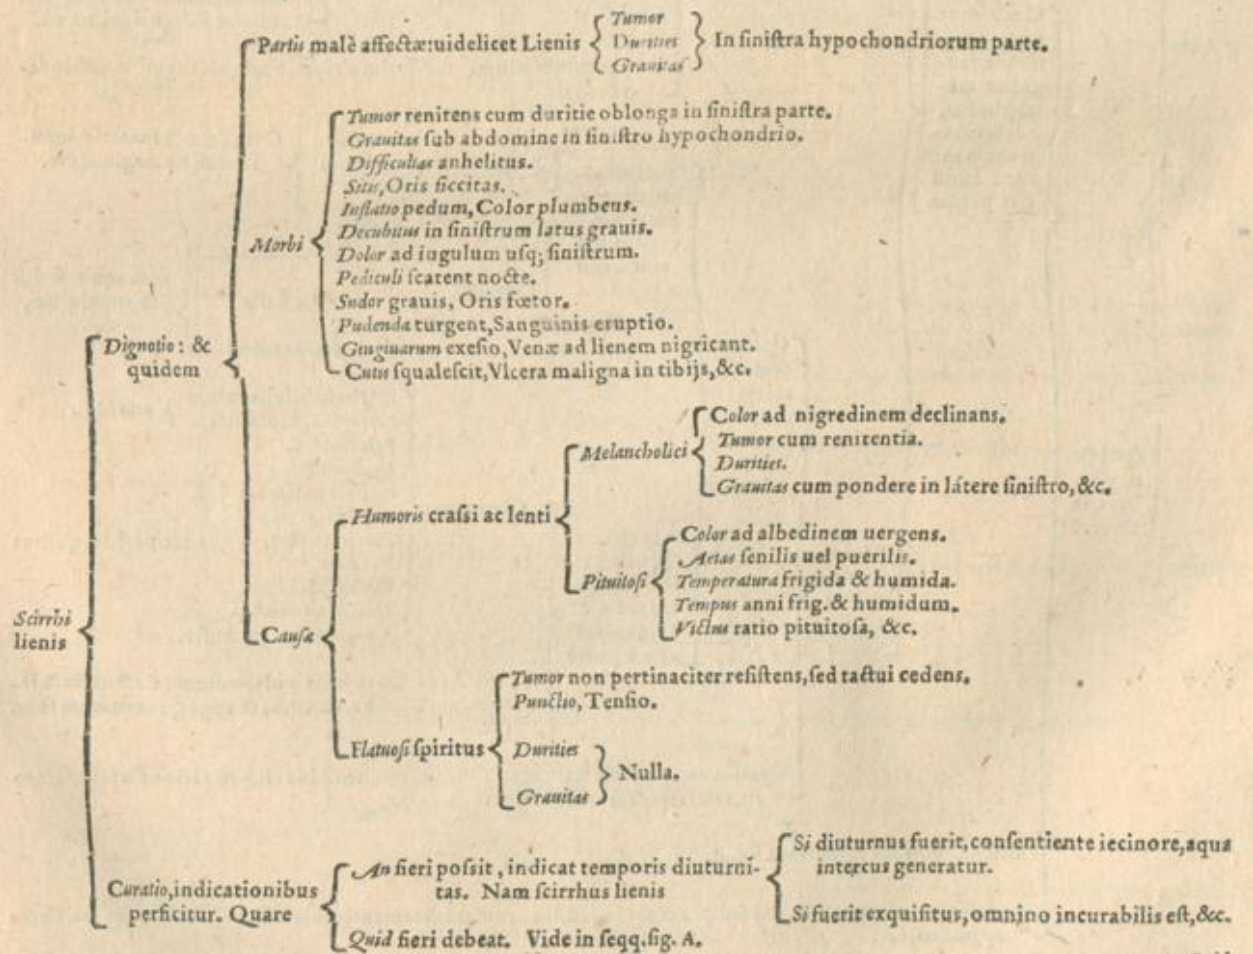 Partis malè affectæ: uidelicet Lienis
Tumor
Durities
Grauitas
In sinistra hypochondriorum parte.
Morbi
Tumor renitens cum duritie oblonga in sinistra parte.
Grauitas sub abdomine in sinistro hypochondrio.
Difficultas anhelitus.
Sitis, Oris siccitas.
Inflatio pedum, Color plumbeus.
Decubitus in sinistrum latus grauis.
Dolor ad iugulum usq; sinistrum.
Pediculi scatent nocte.
Sudor grauis, Oris fœtor.
Pudenda turgent, Sanguinis eruptio.
Gingiuarum exesio, Venæ ad lienem nigricant.
Cutis squalescit, Vlcera maligna in tibijs, &c.
Dignotio: &
quidem
Melancholici
Color ad nigredinem declinans.
Tumor cum renitentia.
Durities.
Grauitas cum pondere in látere sinistro, &c.
Humoris crassi ac lenti
Pituitosi
Color ad albedinem uergens.
Aetas senilis uel puerilis.
Temperatura frigida & humida.
Tempus anni frig. & humidum.
Victus ratio pituitosa, &c.
Scirrhi
lienis
Causæ
Flatuosi spiritus
Tumor non pertinaciter resistens, sed tactui cedens.
Punctio, Tensio.
Durities
Grauitas
Nulla.
Curatio, indicationibus
perficitur. Quare
An fieri possit, indicat temporis diuturni-
tas. Nam scirrhus lienis
Si diuturnus fuerit, consentiente iecinore, aqua
intercus generatur.
Si fuerit exquisitus, omnino incurabilis est, &c.
Quid fieri debeat. Vide in seqq. sig. A.